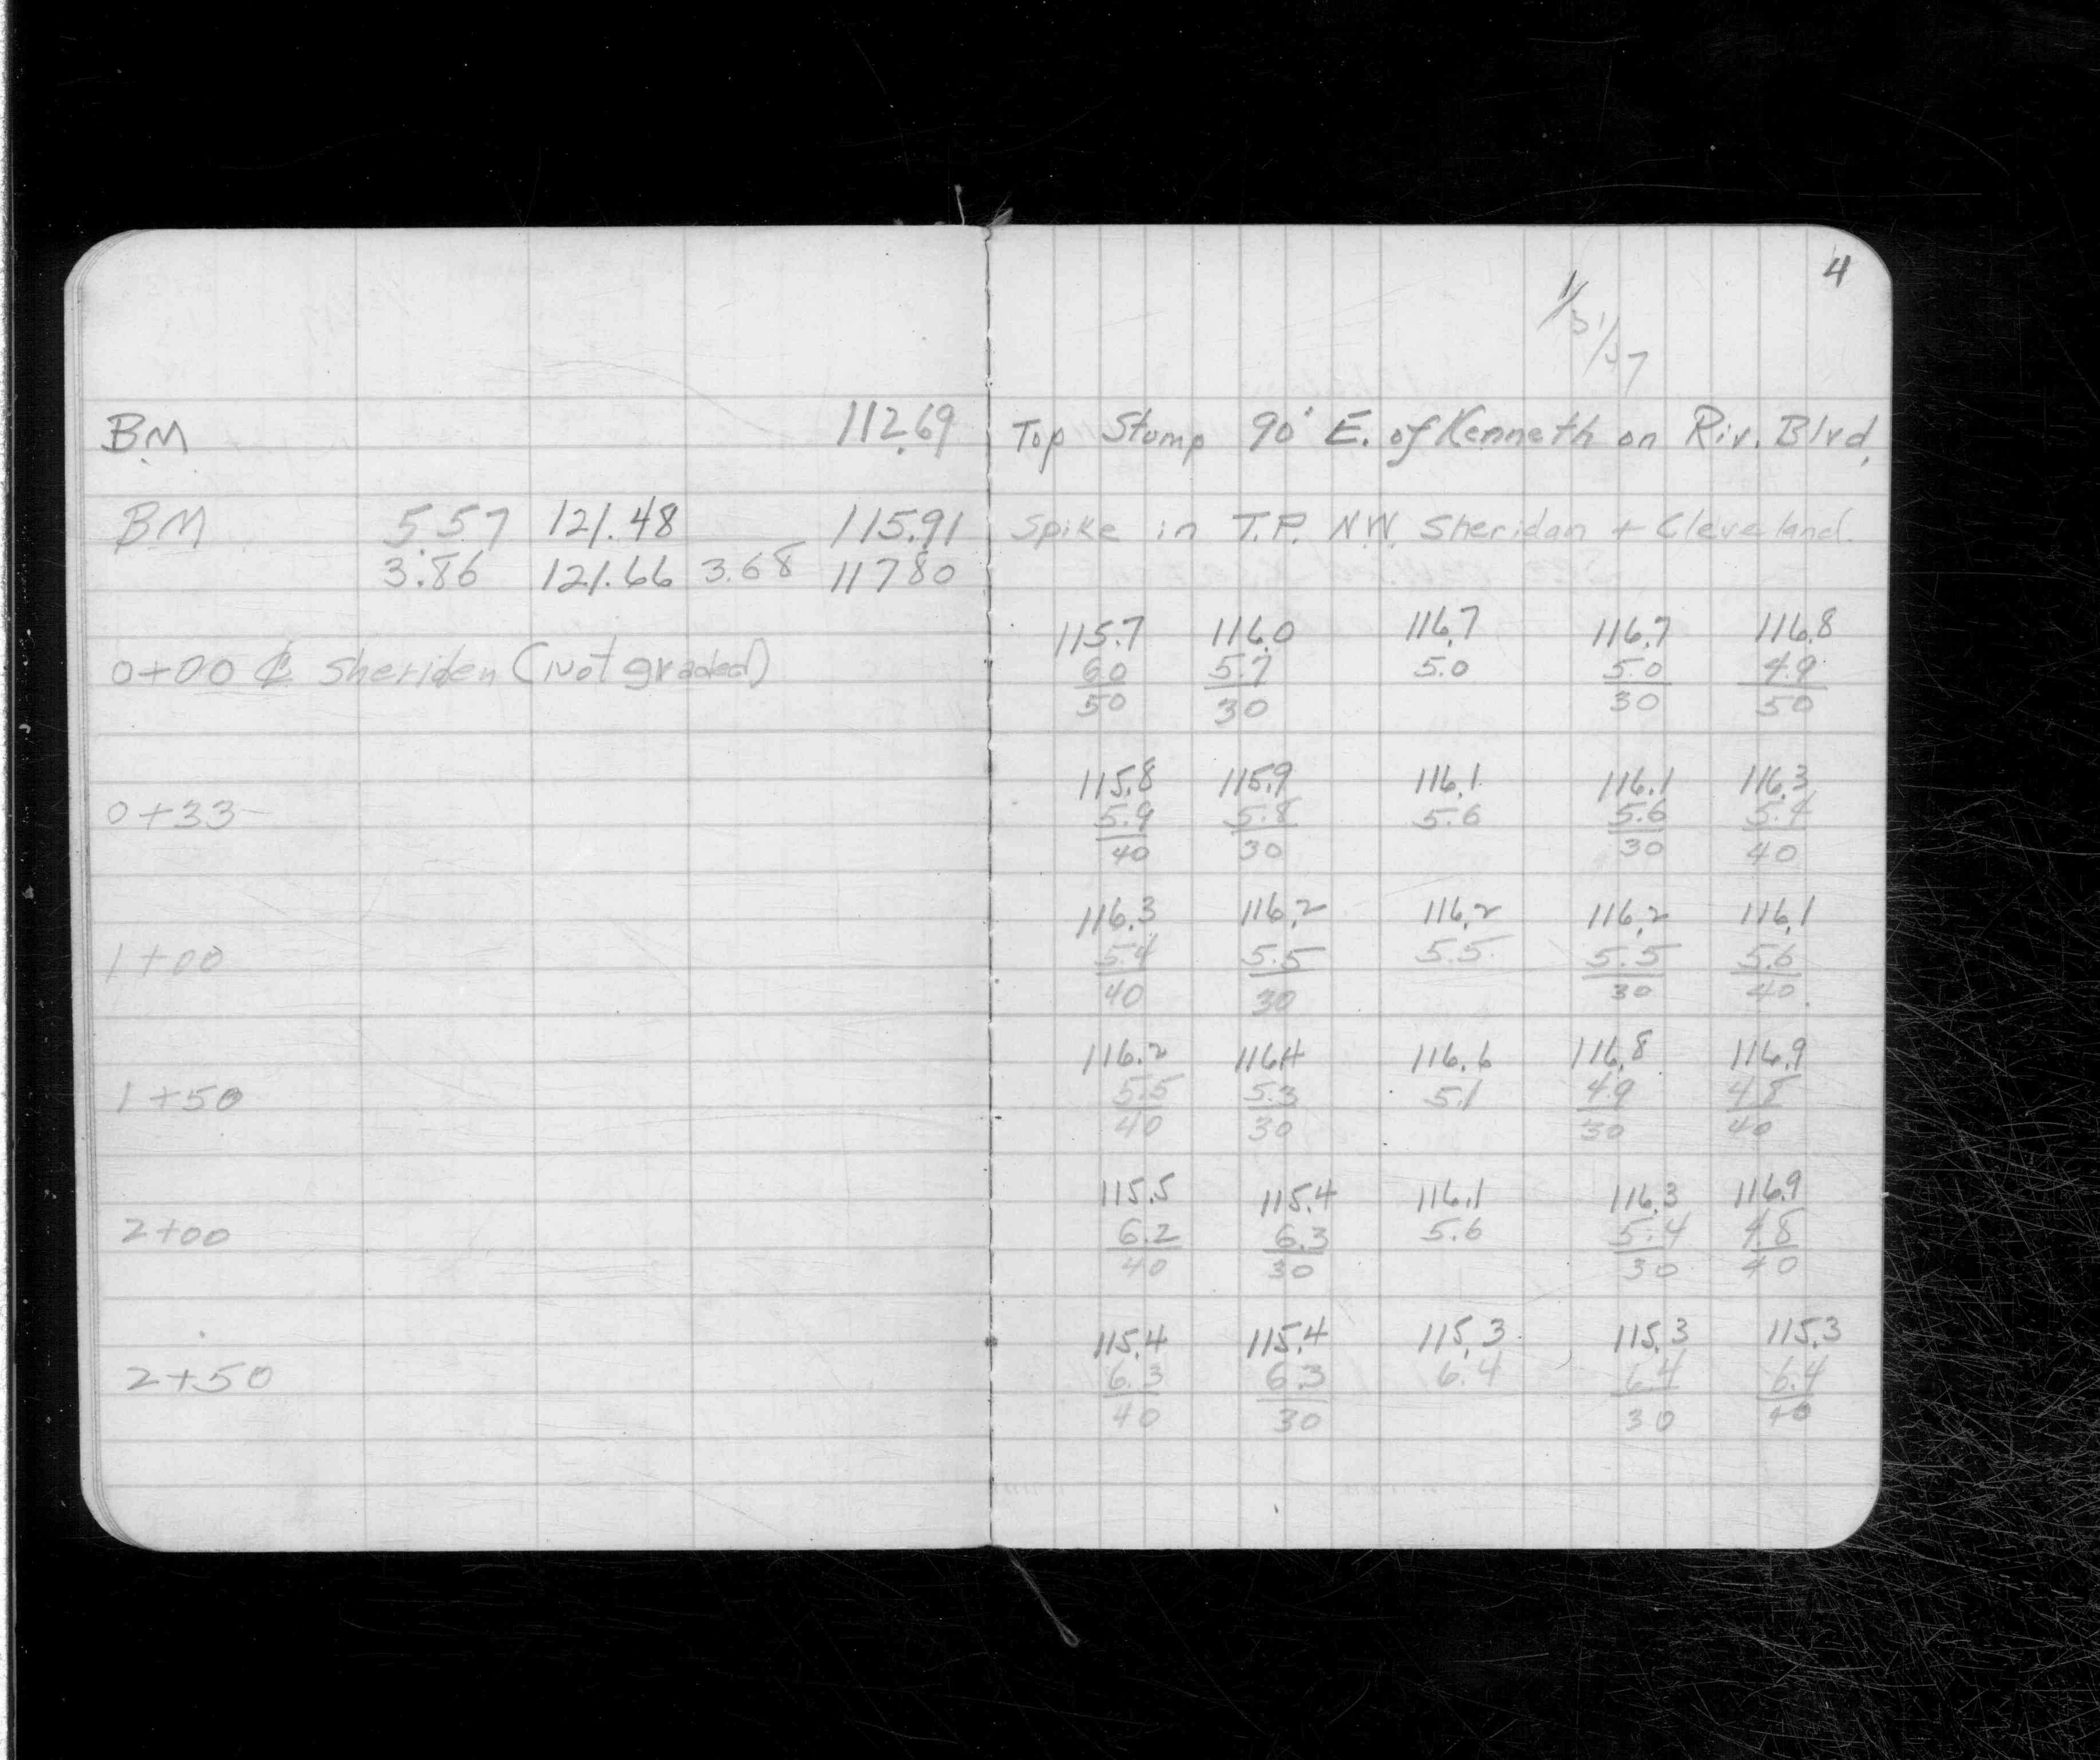 4
1/31/57
BM 112.69 Top Stump 90' E. of Kenneth on Riv. Blvd.
BM 5.57 121.48 115.91 Spike in T.P. N.W. Sheridan + Cleveland.
3.86 121.66 3.68 117.80
115.7 116.0 116.7 116.7 116.8
0+00 ₵ Sheriden (Not graded) 6.0 5.7 5.0 5.0 4.9
50 30 30 50
115.8 115.9 116.1 116.1 116.3
0+33 5.9 5.8 5.6 5.6 5.4
40 30 30 40
116.3 116.2 116.2 116.2 116.1
1+00 5.4 5.5 5.5 5.5 5.6
40 30 30 40
116.2 116.4 116.6 116.8 116.9
1+50 5.5 5.3 5.1 4.9 4.8
40 30 30 40
115.5 115.4 116.1 116.3 116.9
2+00 6.2 6.3 5.6 5.4 4.8
40 30 30 40
115.4 115.4 115.3 115.3 115.3
2+50 6.3 6.3 6.4 6.4 6.4
40 30 30 40